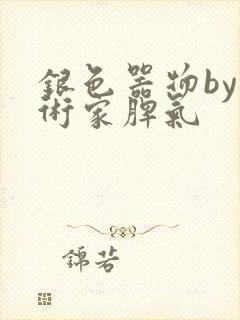 銀色器物by
術家脾氣
錦若